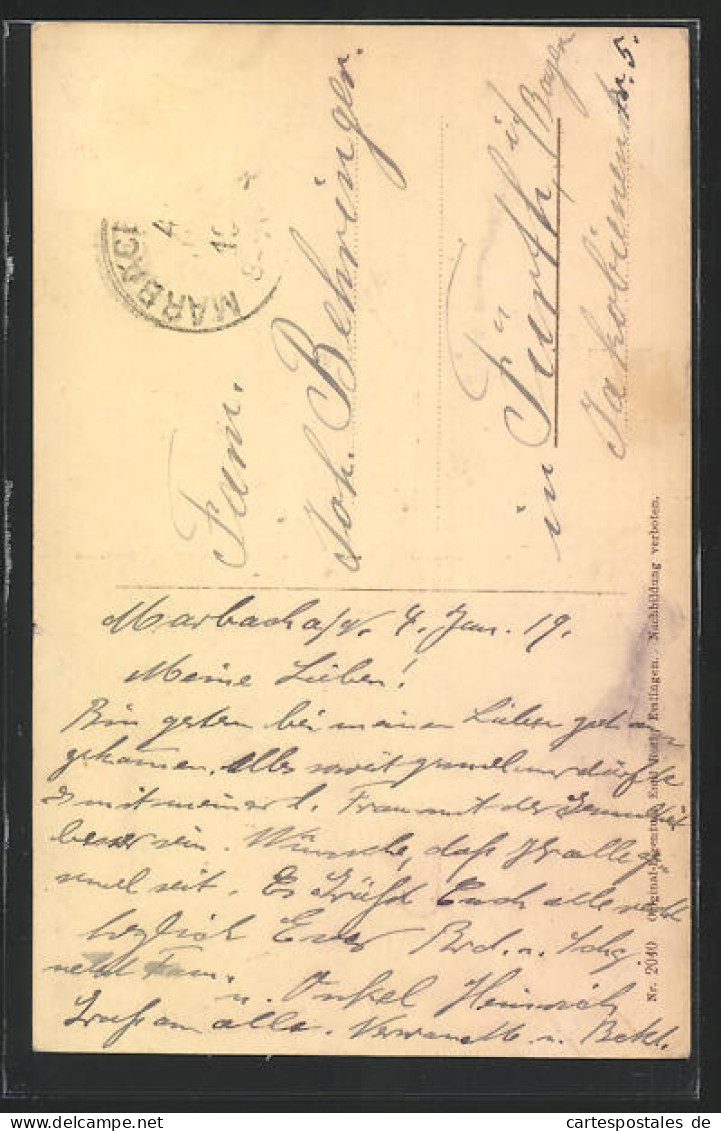 Fam.
Joh. Behringer.
in Fürth, i/Bayern
Jakobinenstr. 5.
MARBACH
Marbach a/N. 4. Jan. 19.
Meine Lieben!
Bin gestern bei meinen Lieben gut an-
gekommen. Alles soweit gesund nur dürfte
es mit meiner l. Frau mit der Gesundheit
besser sein. Wünsche, daß Ihr alle ge-
sund seit. Es Grüßt Euch alle recht
herzlich Euer Brd. u. Schg.
nebst Fam.
u. Onkel Heinrich
Gruß an alle. Verwandte u. Bekt.
Nr. 2040 Original-Eigentum Emil Esslingen. Nachbildung verboten.
cartespostales de